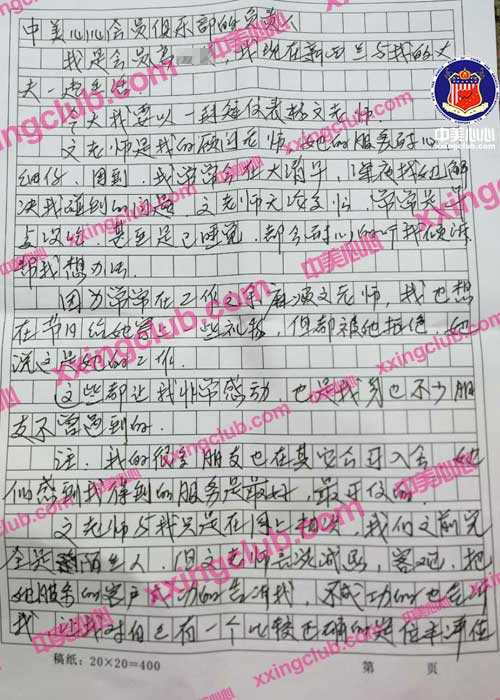 中美心心会员俱乐部的负责人
我是会员高 我现在新西兰与我的丈
夫一起生活
今天我要以 封信仅表扬文老师
文老师是我的顾问老师 她的服务耐心
细仔、周到、我常常会在大清早、深夜找她解
决我遇到的问题 文老师无论多忙 常常是
是没吃 甚至是已睡觉 都会耐心的听我倾诉
帮我想办法
因为常常在工作之余麻烦文老师，我也想
在节日给她买上一些礼物，但都被她拒绝，她
说这是她的工作
这些都让我非常感动，也是我身边不少朋
友不曾遇到的
注：我的很多朋友也在其它公司入会，她
们感到我得到的服务是最好，最开仪的
文老师与我只是在网上相识，我们之前完
全是陌生人，但文老师 诚恳，客观，把
她服务的客户成功的告诉我，不成功的也告诉
我 让我对自己有一个比较正确的定位和评估
稿纸：20×20=400
第 页
中美心心
xxingclub.com